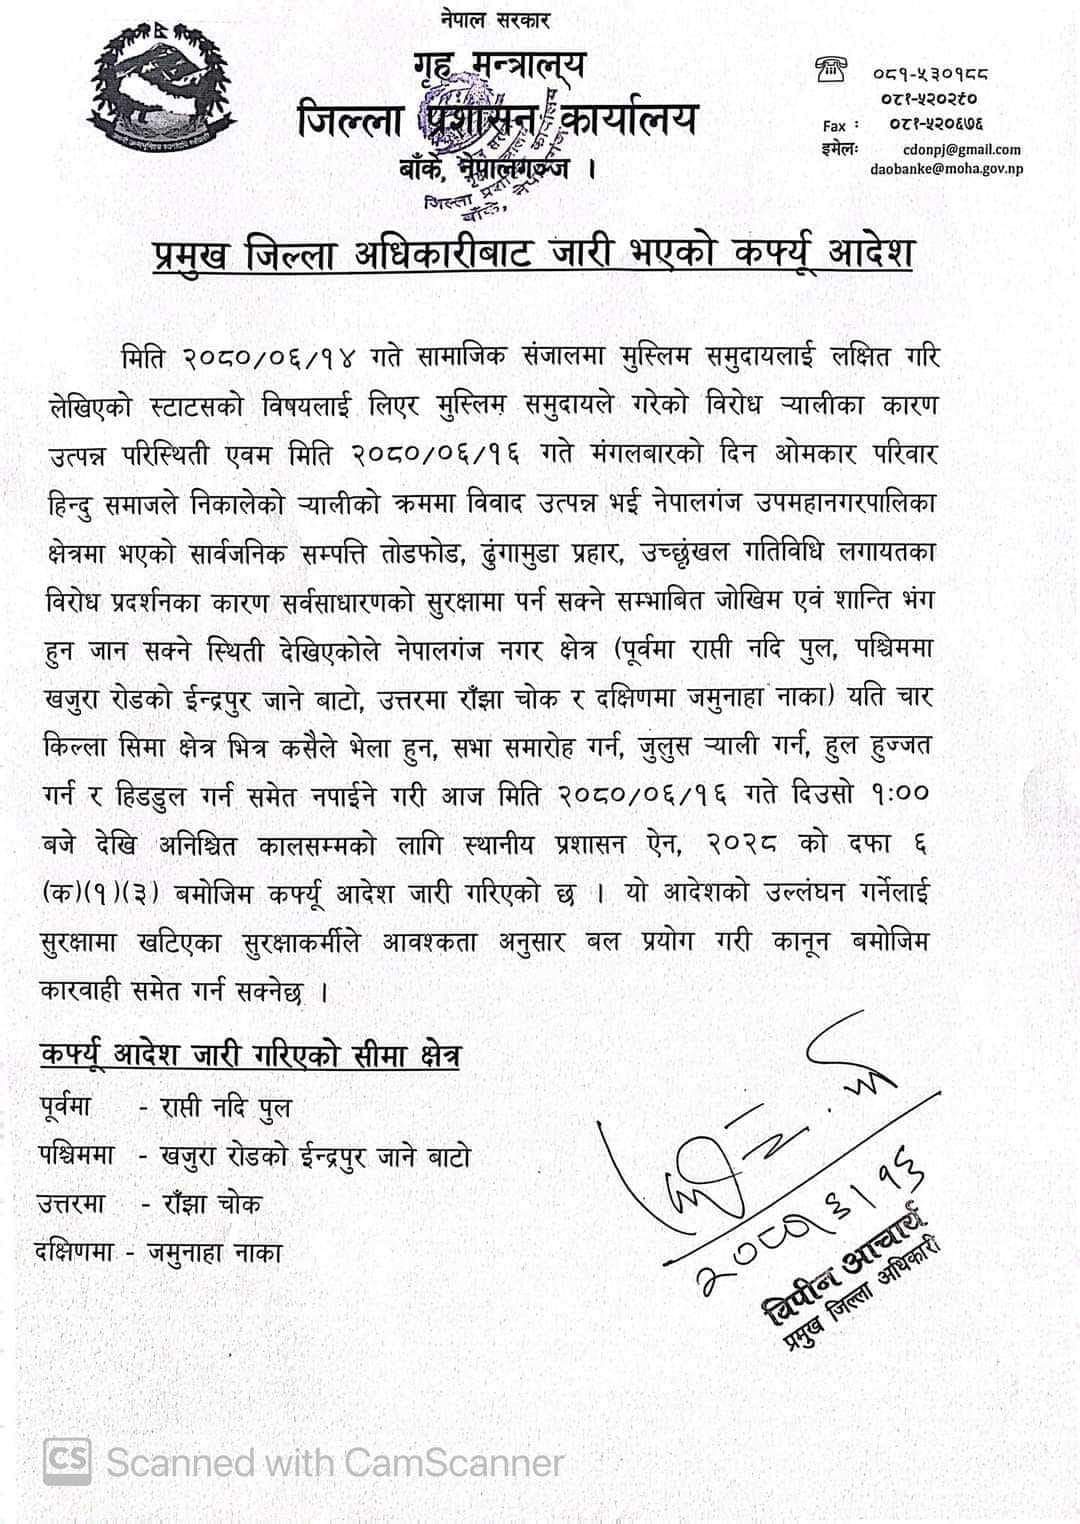 नेपाल सरकार
गृह मन्त्रालय
जिल्ला प्रशासन कार्यालय
बाँके, नेपालगञ्ज ।
०८१-५३०१८८
०८१-५२०२९०
Fax : ०८१-५२०६७६
इमेलः cdonpj@gmail.com
daobanke@moha.gov.np
प्रमुख जिल्ला अधिकारीबाट जारी भएको कर्फ्यू आदेश
मिति २०८०/०६/१४ गते सामाजिक संजालमा मुस्लिम समुदायलाई लक्षित गरि
लेखिएको स्टाटसको विषयलाई लिएर मुस्लिम समुदायले गरेको विरोध र्‍यालीका कारण
उत्पन्न परिस्थिती एवम मिति २०८०/०६/१६ गते मंगलबारको दिन ओमकार परिवार
हिन्दु समाजले निकालेको र्‍यालीको क्रममा विवाद उत्पन्न भई नेपालगंज उपमहानगरपालिका
क्षेत्रमा भएको सार्वजनिक सम्पत्ति तोडफोड, ढुंगामुडा प्रहार, उच्छृंखल गतिविधि लगायतका
विरोध प्रदर्शनका कारण सर्वसाधारणको सुरक्षामा पर्न सक्ने सम्भाबित जोखिम एवं शान्ति भंग
हुन जान सक्ने स्थिती देखिएकोले नेपालगंज नगर क्षेत्र (पूर्वमा राप्ती नदि पुल, पश्चिममा
खजुरा रोडको ईन्द्रपुर जाने बाटो, उत्तरमा राँझा चोक र दक्षिणमा जमुनाहा नाका) यति चार
किल्ला सिमा क्षेत्र भित्र कसैले भेला हुन, सभा समारोह गर्न, जुलुस र्‍याली गर्न, हुल हुज्जत
गर्न र हिडडुल गर्न समेत नपाईने गरी आज मिति २०८०/०६/१६ गते दिउसो १:००
बजे देखि अनिश्चित कालसम्मको लागि स्थानीय प्रशासन ऐन, २०२८ को दफा ६
(क)(१)(३) बमोजिम कर्फ्यू आदेश जारी गरिएको छ । यो आदेशको उल्लंघन गर्नेलाई
सुरक्षामा खटिएका सुरक्षाकर्मीले आवश्कता अनुसार बल प्रयोग गरी कानून बमोजिम
कारवाही समेत गर्न सक्नेछ ।
कर्फ्यू आदेश जारी गरिएको सीमा क्षेत्र
पूर्वमा - राप्ती नदि पुल
पश्चिममा - खजुरा रोडको ईन्द्रपुर जाने बाटो
उत्तरमा - राँझा चोक
दक्षिणमा - जमुनाहा नाका
२०८०/६/१६
विपीन आचार्य
प्रमुख जिल्ला अधिकारी
CS Scanned with CamScanner